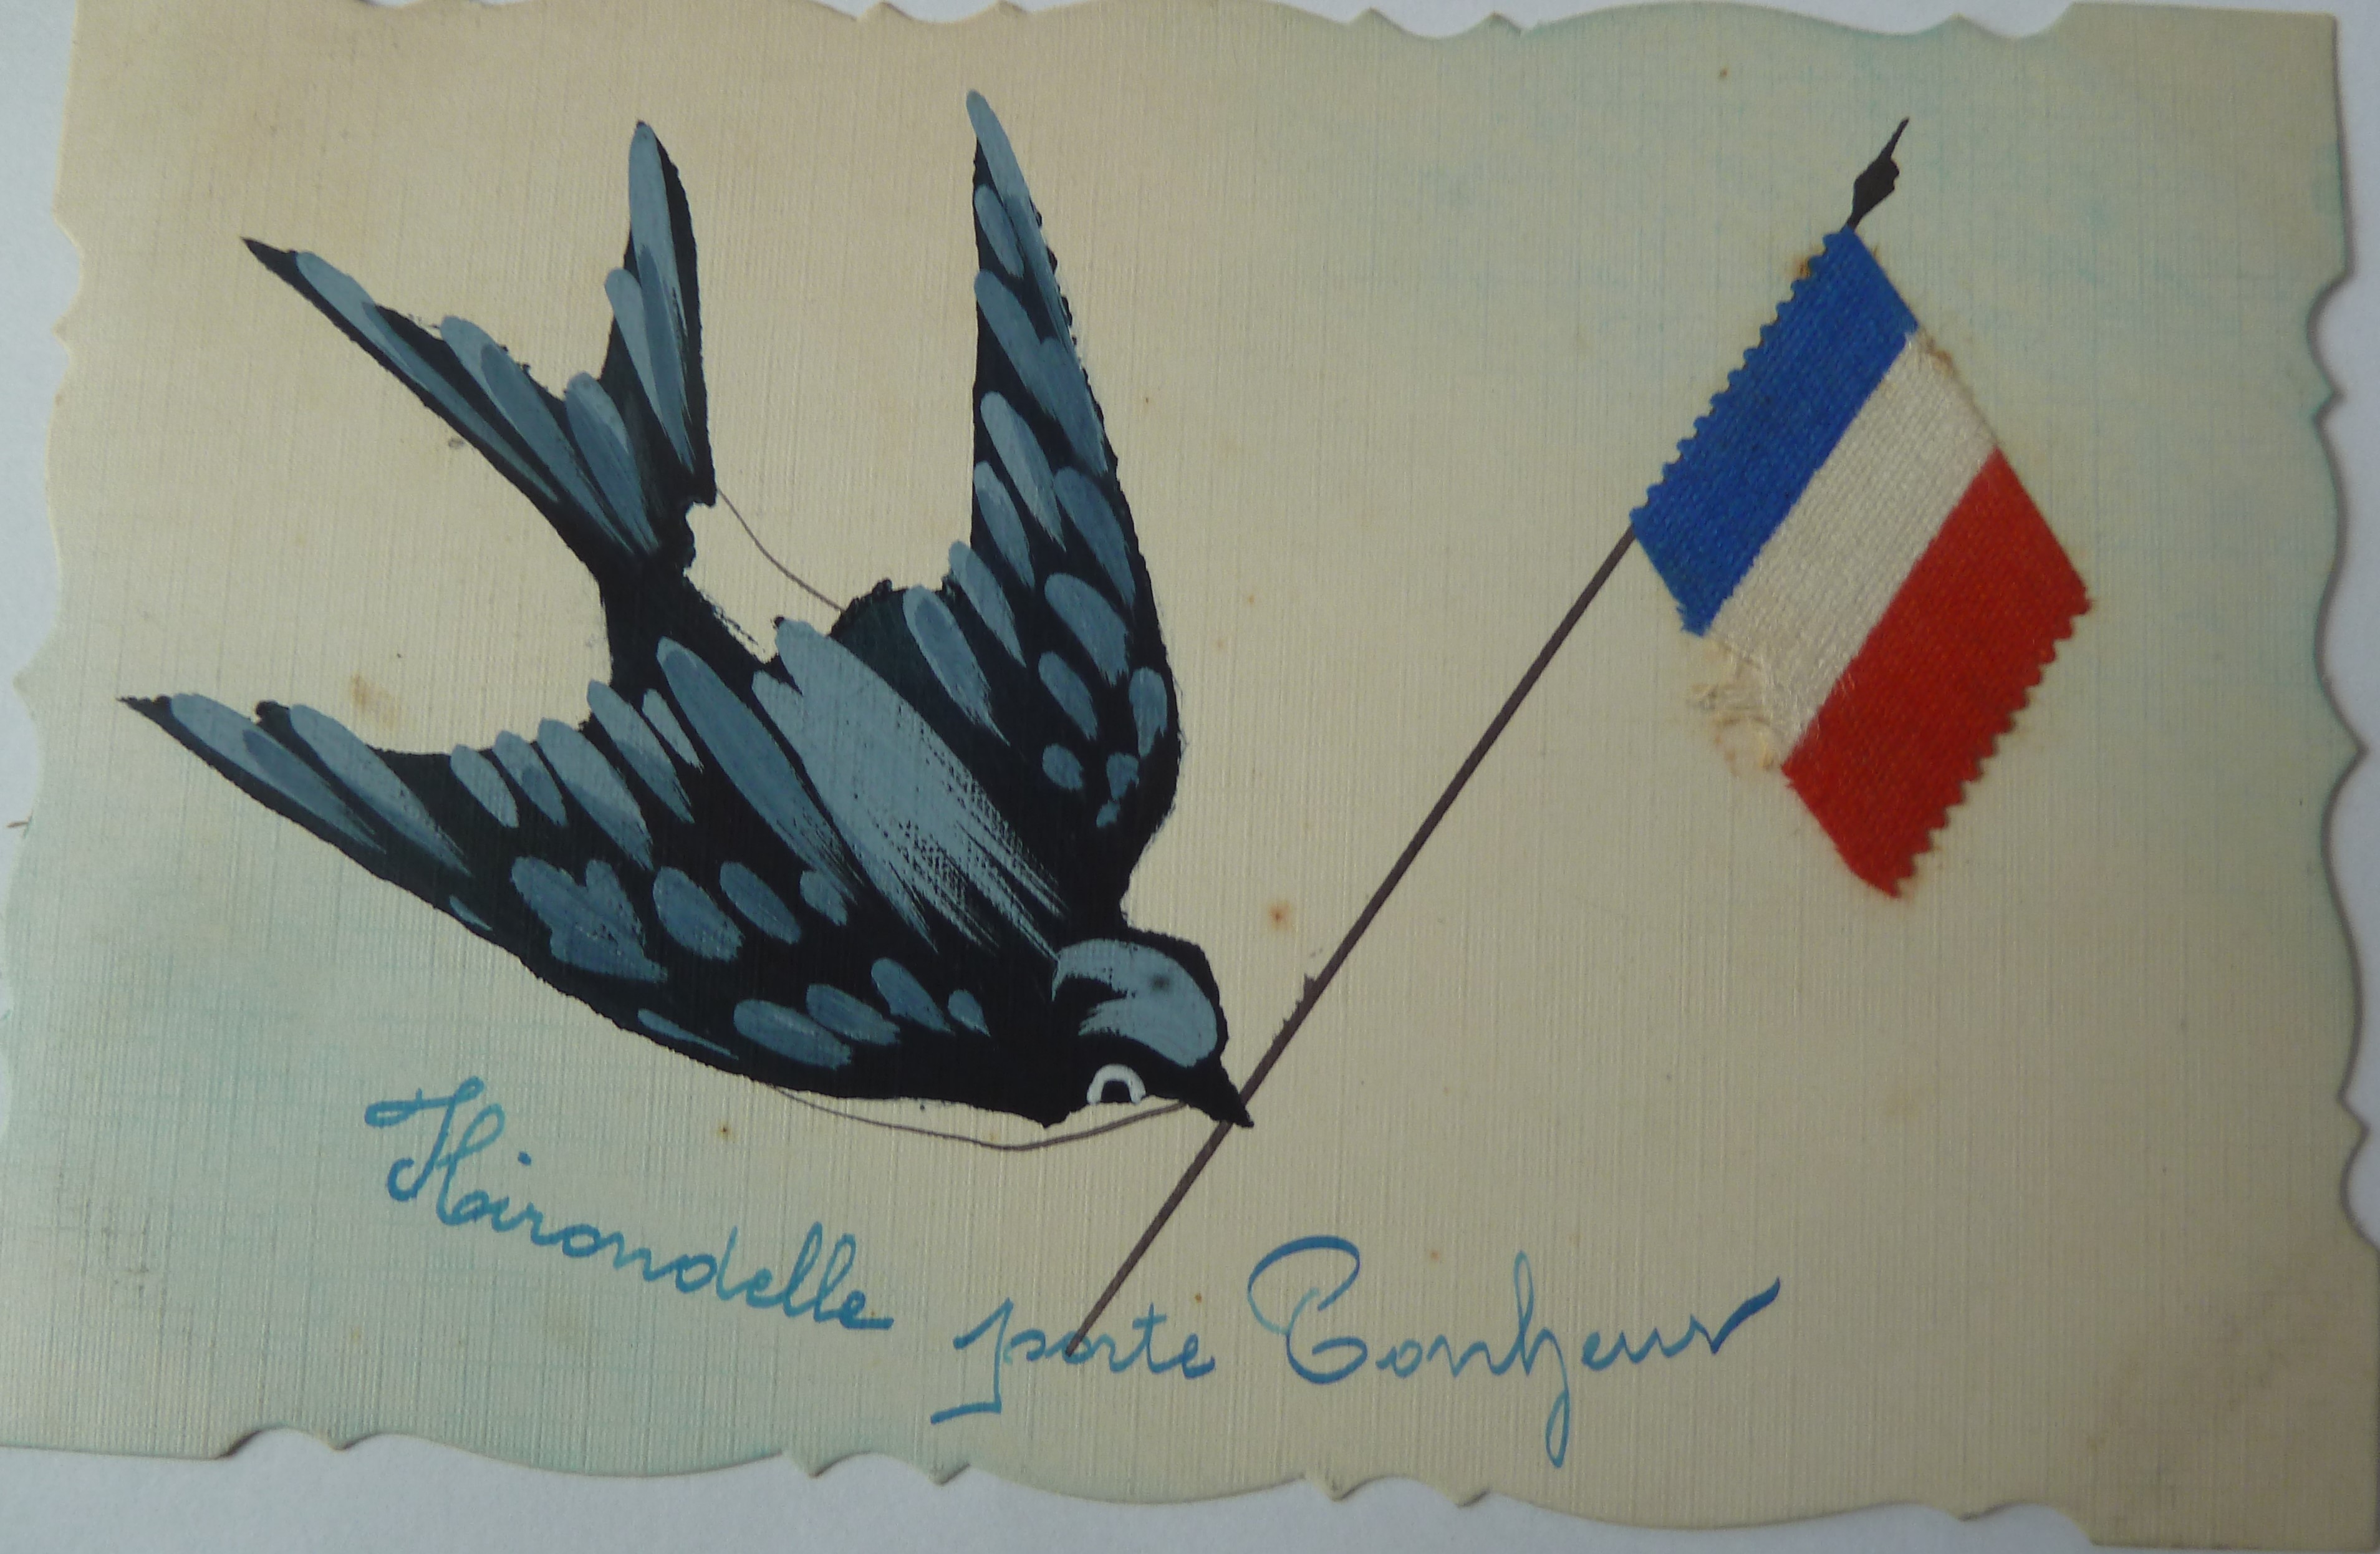 Hirondelle porte Bonheur